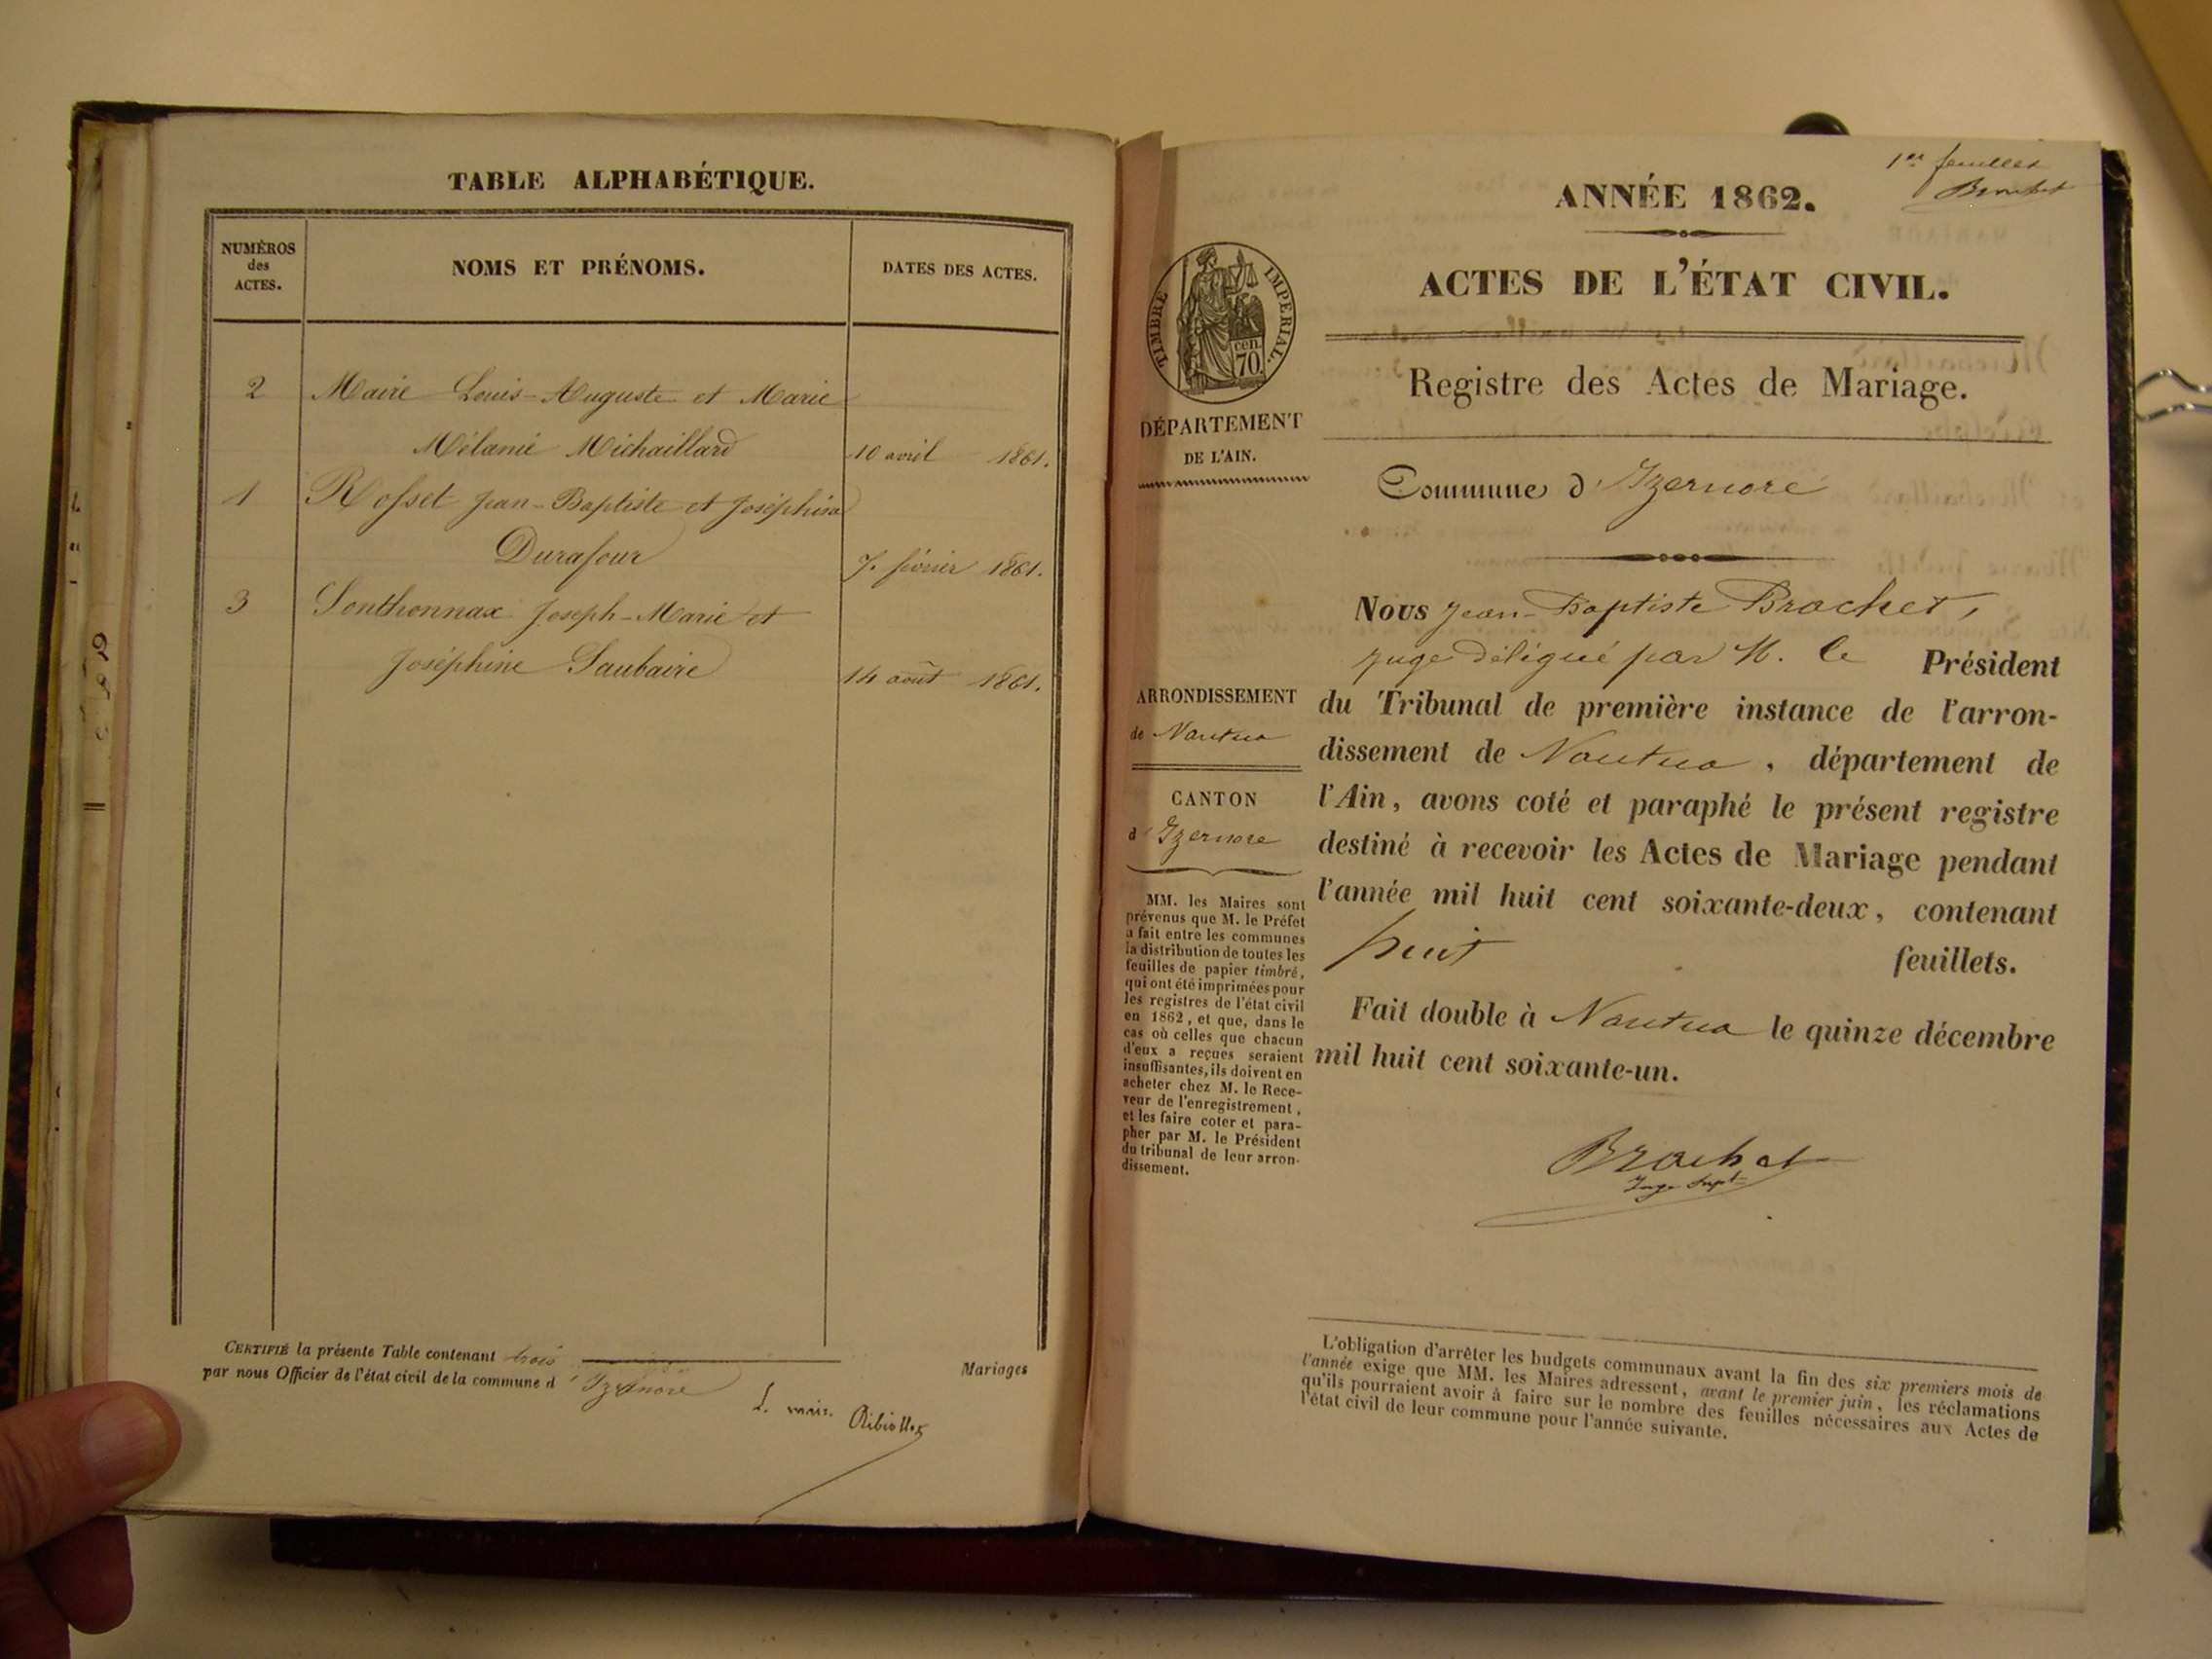 TABLE ALPHABÉTIQUE.
NUMÉROS
des
ACTES.
NOMS ET PRÉNOMS.
DATES DES ACTES.
2 Maire Louis-Auguste et Marie
Mélanie Michaillard 10 avril 1861.
1 Rosset Jean-Baptiste et Joséphine
Durafour 7. février 1861.
3 Sonthonnax Joseph-Marie et
Joséphine Laubaire 14 août 1861.
CERTIFIÉ la présente Table contenant trois Mariages
par nous Officier de l'état civil de la commune d'Izernore
L. maire
1er feuillet
Brochet
ANNÉE 1862.
ACTES DE L'ÉTAT CIVIL.
TIMBRE IMPERIAL.
70 cen.
Registre des Actes de Mariage.
DÉPARTEMENT
DE L'AIN.
Commune d'Izernore
ARRONDISSEMENT
de Nantua
CANTON
d'Izernore
MM. les Maires sont
prévenus que M. le Préfet
a fait entre les communes
la distribution de toutes les
feuilles de papier timbré,
qui ont été imprimées pour
les registres de l'état civil
en 1862, et que, dans le
cas où celles que chacun
d'eux a reçues seraient
insuffisantes, ils doivent en
acheter chez M. le Rece-
veur de l'enregistrement,
et les faire coter et para-
pher par M. le Président
du tribunal de leur arron-
dissement.
Nous Jean-Baptiste Brochet,
juge délégué par M. le Président
du Tribunal de première instance de l'arron-
dissement de Nantua, département de
l'Ain, avons coté et paraphé le présent registre
destiné à recevoir les Actes de Mariage pendant
l'année mil huit cent soixante-deux, contenant
huit feuillets.
Fait double à Nantua le quinze décembre
mil huit cent soixante-un.
Brochet
Juge Supt
L'obligation d'arrêter les budgets communaux avant la fin des six premiers mois de
l'année exige que MM. les Maires adressent, avant le premier juin, les réclamations
qu'ils pourraient avoir à faire sur le nombre des feuilles nécessaires aux Actes de
l'état civil de leur commune pour l'année suivante.